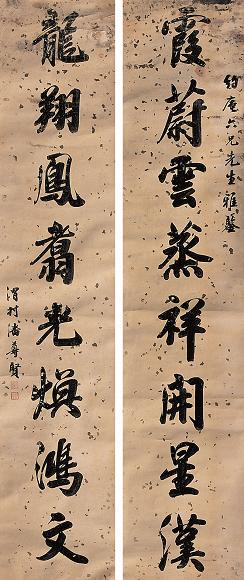 霞蔚雲蒸祥開星漢
約庵六兄先生雅鑒
龍翔鳳翥光煥鴻文
潘齡賢